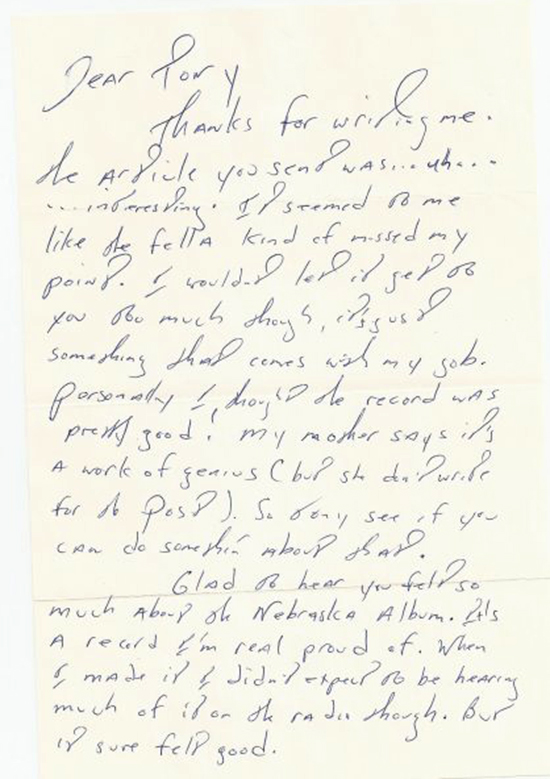 Dear Tony
Thanks for writing me.
the article you send was... uh...
...interesting. It seemed to me
like the fella kind of missed my
point. I wouldn't let it get to
you too much though, it's just
something that comes with my job.
Personally I, thought the record was
pretty good! My mother says it's
A work of genius (but she don't write
for the Post). So Tony see if you
can do somethin' about that.
Glad to hear you felt so
much about the Nebraska Album. It's
A record I'm real proud of. When
I made it I didn't expect to be hearing
much of it on the radio though. But
it sure felt good.